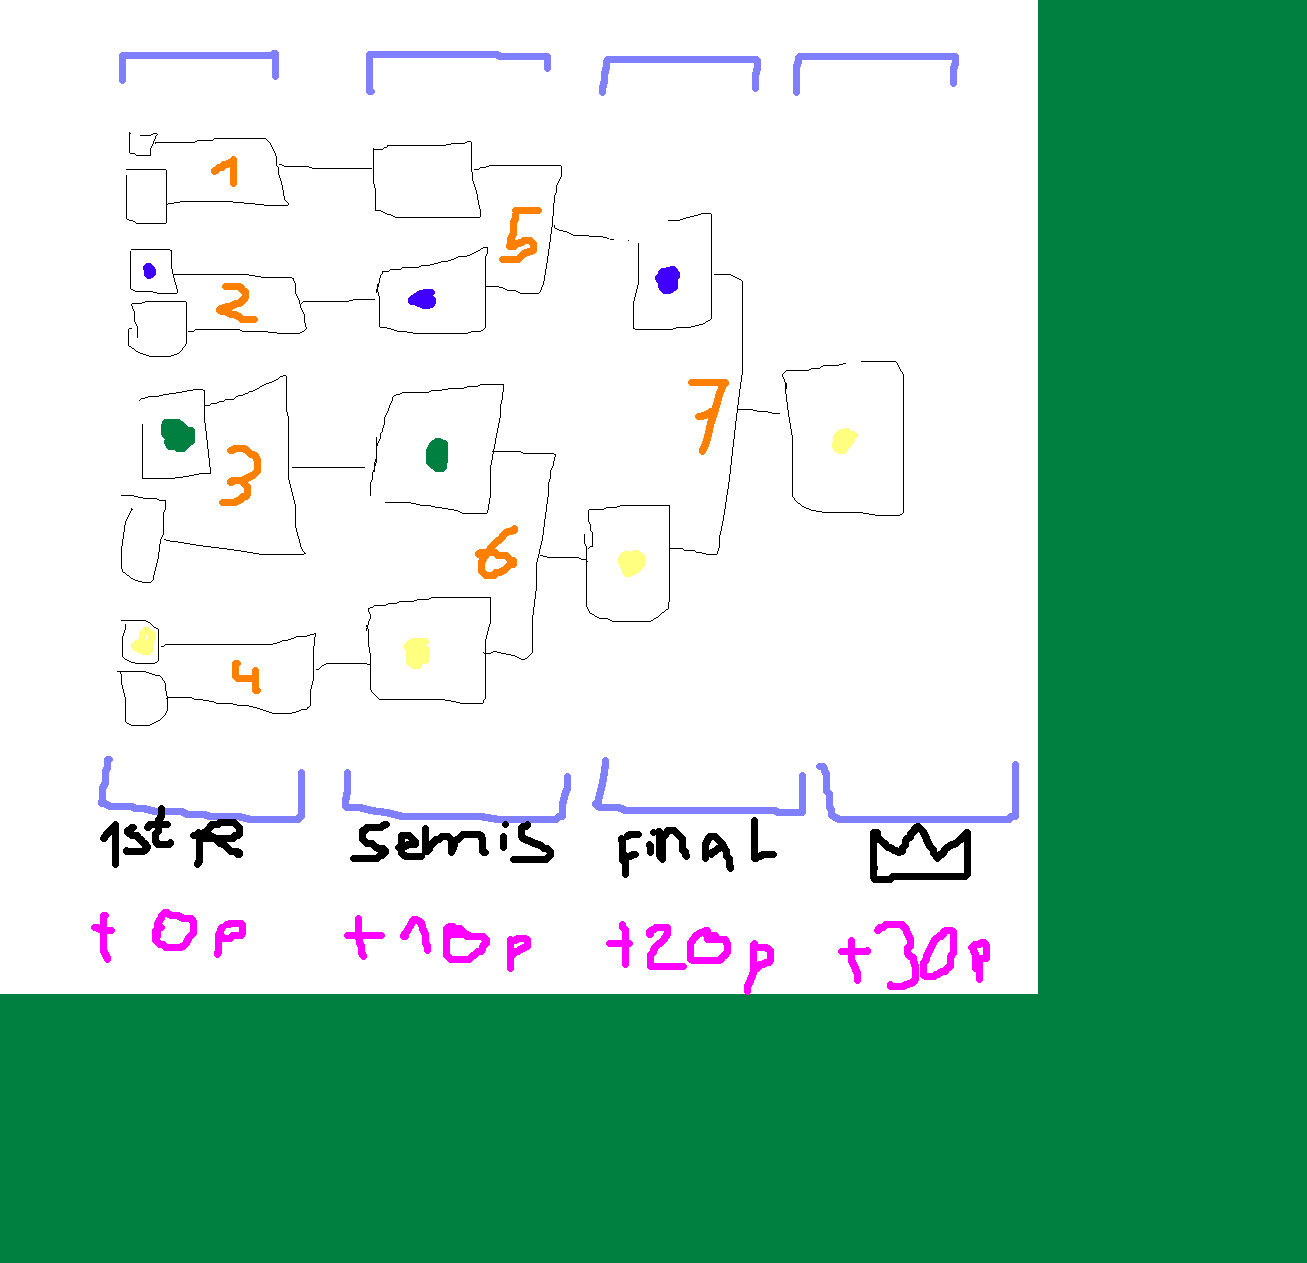 1
5
2
7
3
6
4
1st R semis final
+0p +10p +20p +30p